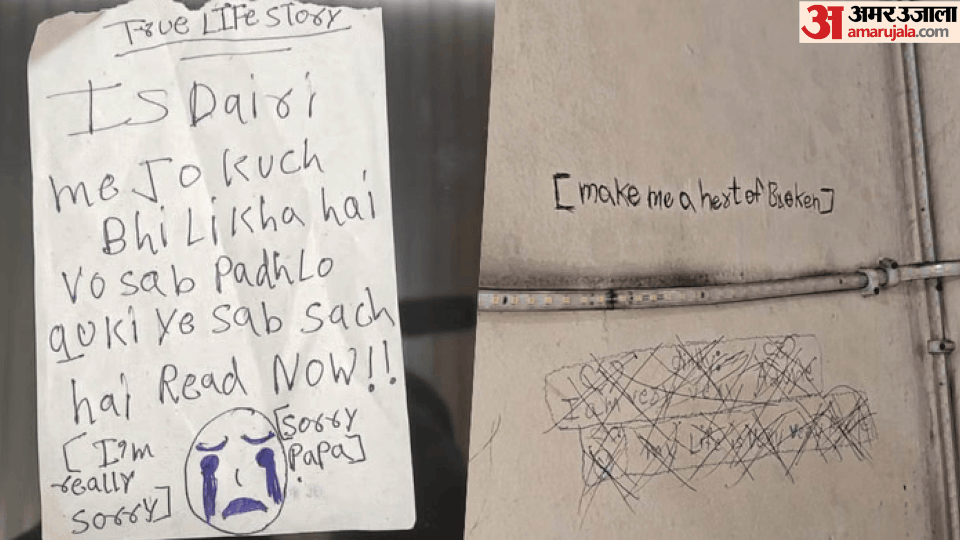 True LIFe STory
IS Dairi
me Jo kuch
Bhi Likha hai
Vo sab Padh Lo
quki ye sab sach
hai Read NOW!!
[I'm
really
sorry]
[sorry
PaPa]
अ अमर उजाला
amarujala.com
[make me a hert of Broken]
I am very
my Life is very